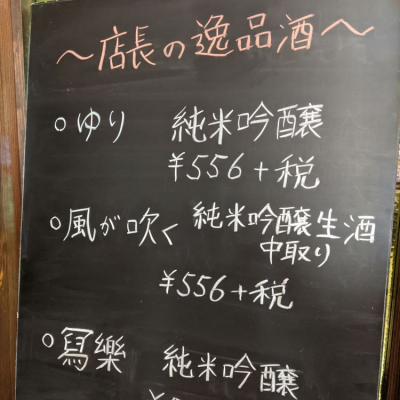 〜店長の逸品酒〜
○ゆり 純米吟醸
¥556+税
○風が吹く 純米吟醸生酒
中取り
¥556+税
○冩樂 純米吟醸